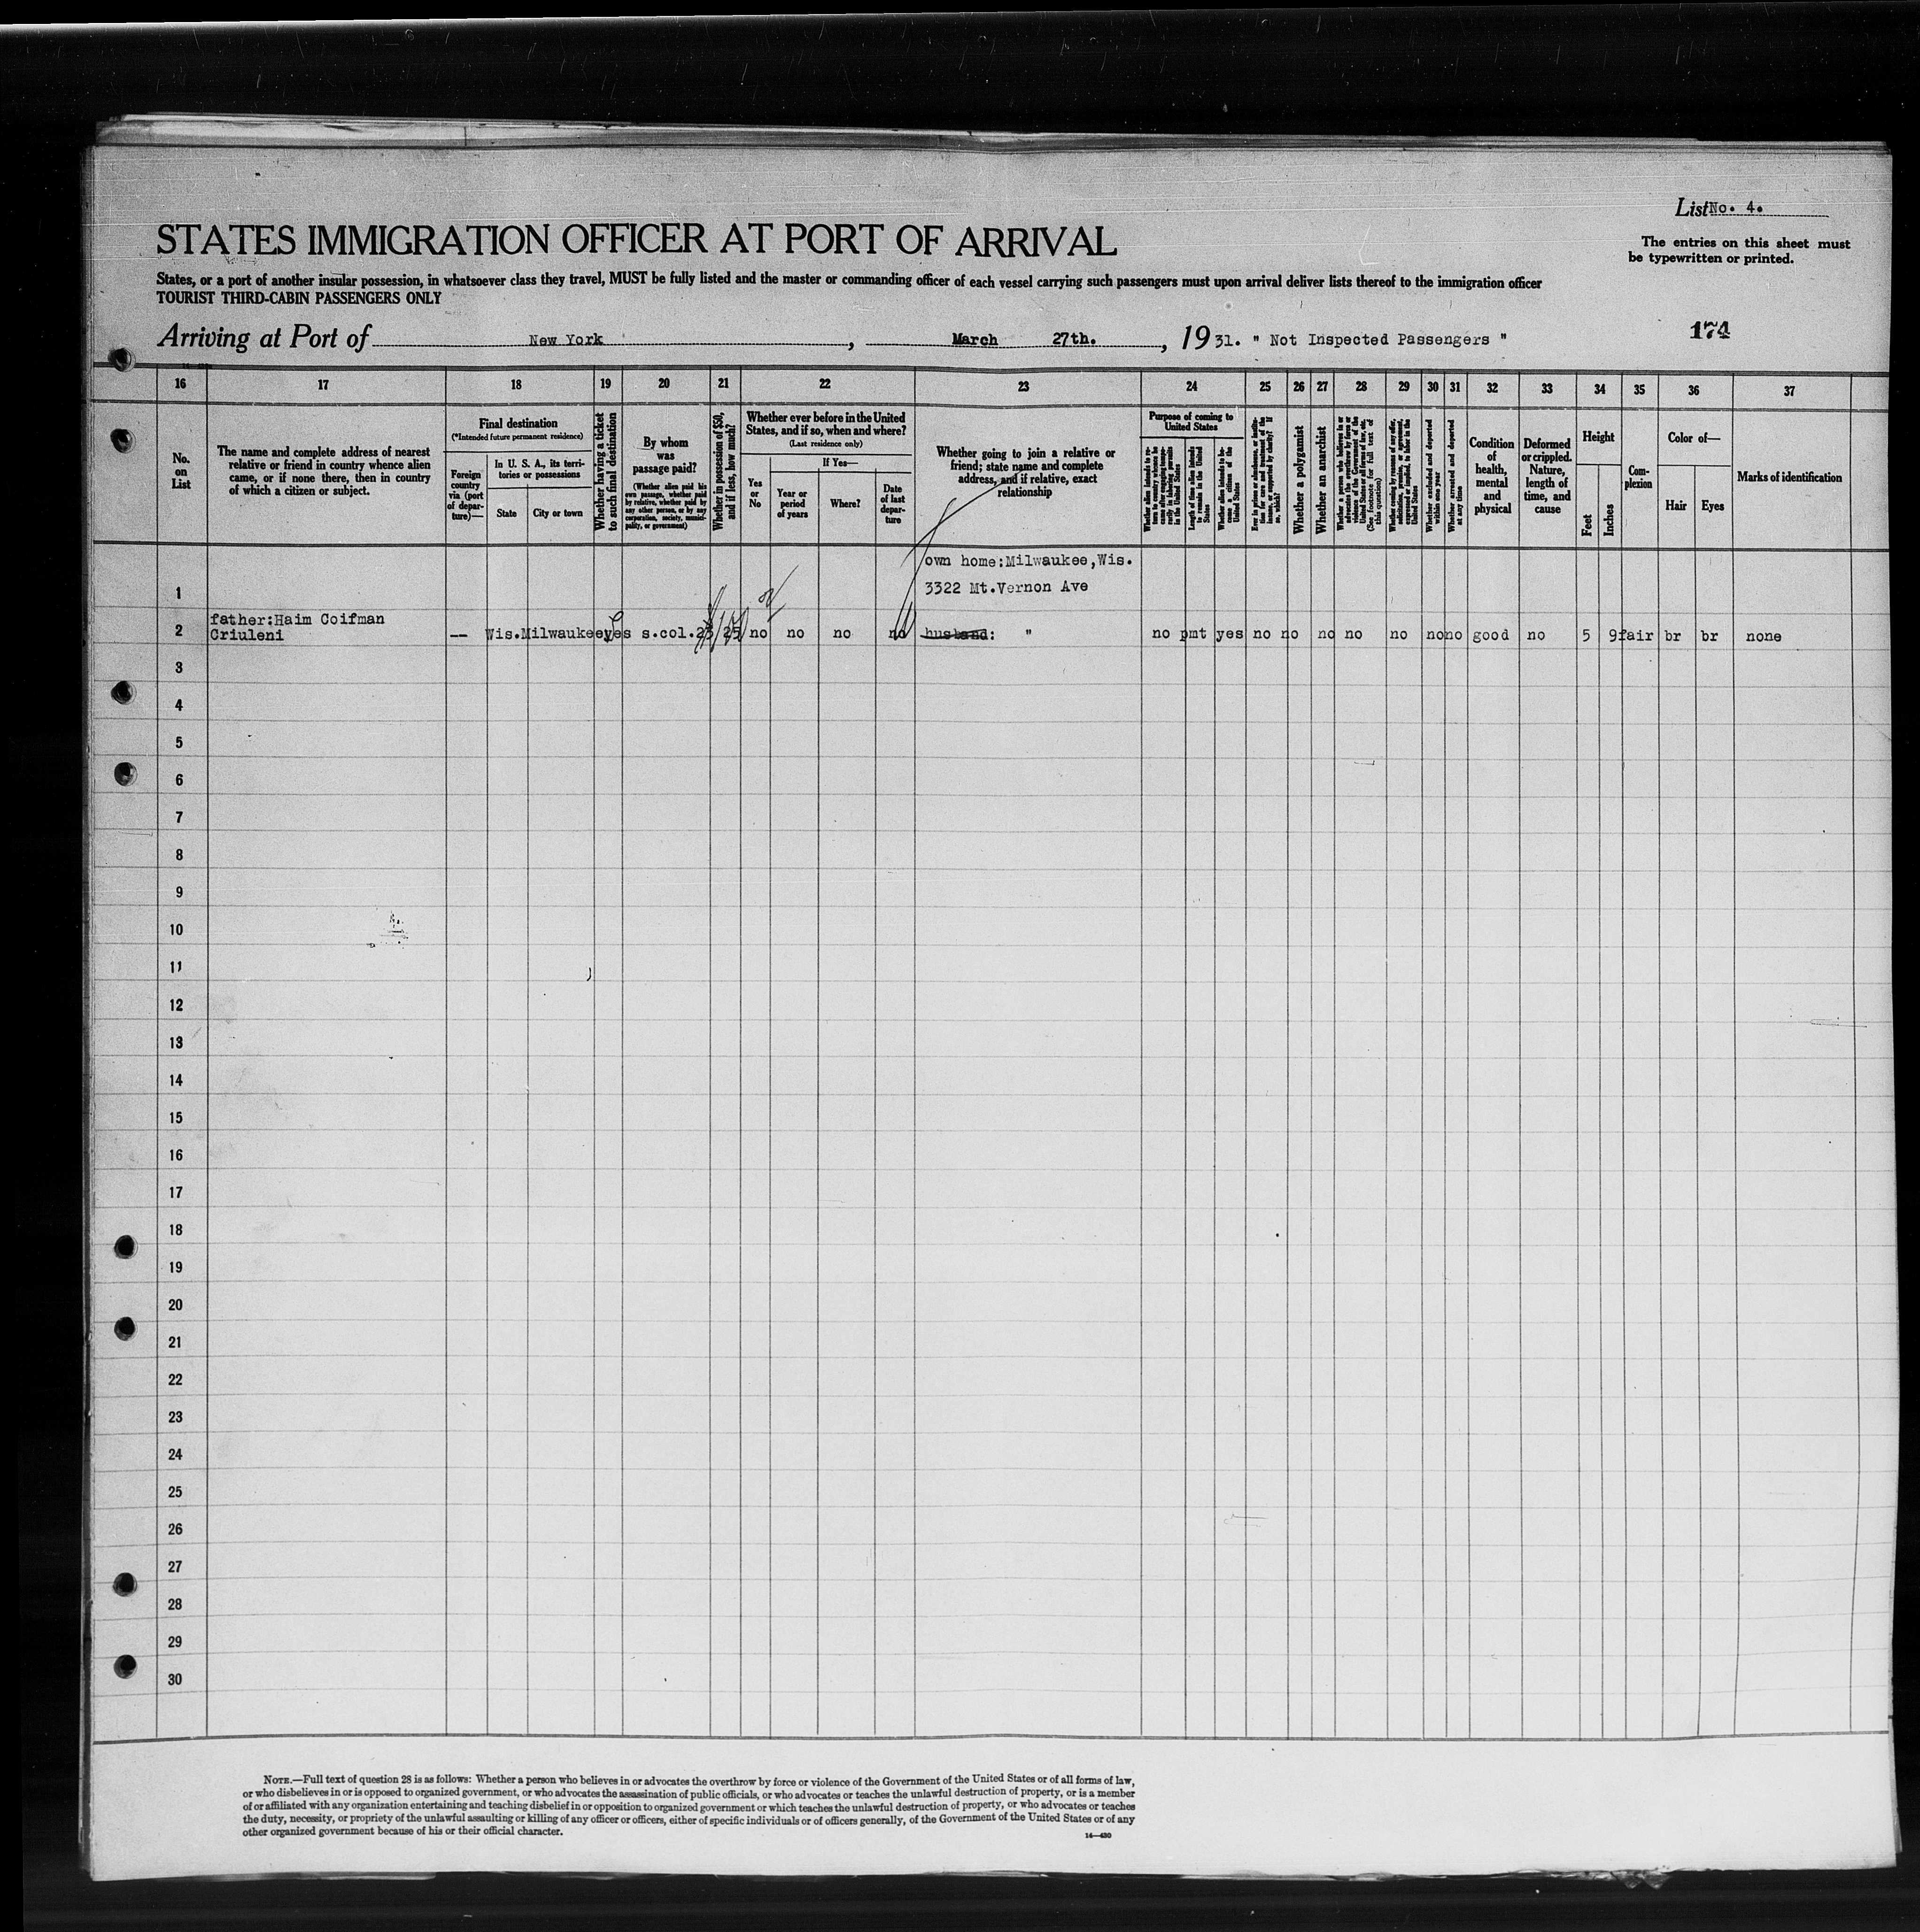 List No. 4.
STATES IMMIGRATION OFFICER AT PORT OF ARRIVAL
The entries on this sheet must
be typewritten or printed.
States, or a port of another insular possession, in whatsoever class they travel, MUST be fully listed and the master or commanding officer of each vessel carrying such passengers must upon arrival deliver lists thereof to the immigration officer
TOURIST THIRD-CABIN PASSENGERS ONLY
Arriving at Port of New York, March 27th., 1931. " Not Inspected Passengers " 174
16 17 18 19 20 21 22 23 24 25 26 27 28 29 30 31 32 33 34 35 36 37
No.
on
List
The name and complete address of nearest
relative or friend in country whence alien
came, or if none there, then in country
of which a citizen or subject.
Final destination
(*Intended future permanent residence)
Foreign
country
via (port
of depar-
ture)—
In U. S. A., its terri-
tories or possessions
State
City or town
Whether having a ticket
to such final destination
By whom
was
passage paid?
(Whether alien paid his
own passage, whether paid
by relative, whether paid by
any other person, or by any
corporation, society, munici-
pality, or government)
Whether in possession of $50,
and if less, how much?
Whether ever before in the United
States, and if so, when and where?
(Last residence only)
Yes
or
No
If Yes—
Year or
period
of years
Where?
Date
of last
depar-
ture
Whether going to join a relative or
friend; state name and complete
address, and if relative, exact
relationship
Purpose of coming to
United States
Whether alien intends to re-
turn to country whence he
came after engaging tempo-
rarily in laboring pursuits
in the United States
Length of time alien intends
to remain in the United
States
Whether alien intends to be-
come a citizen of the
United States
Ever in prison or almshouse, or institu-
tion for care and treatment of the
insane, or supported by charity? If
so, which?
Whether a polygamist
Whether an anarchist
Whether a person who believes in or
advocates the overthrow by force or
violence of the Government of the
United States or all forms of law, etc.
(See footnote for full text of
this question)
Whether coming by reason of any offer,
solicitation, promise, or agreement,
expressed or implied, to labor in the
United States
Whether excluded and deported
within one year
Whether arrested and deported
at any time
Condition
of
health,
mental
and
physical
Deformed
or crippled.
Nature,
length of
time, and
cause
Height
Feet
Inches
Com-
plexion
Color of—
Hair
Eyes
Marks of identification
own home:Milwaukee,Wis.
1 3322 Mt.Vernon Ave
father:Haim Coifman
2 Criuleni -- Wis.Milwaukee yes s.col. 25 no no no no husband: " no pmt yes no no no no no no no good no 5 9 fair br br none
3
4
5
6
7
8
9
10
11
12
13
14
15
16
17
18
19
20
21
22
23
24
25
26
27
28
29
30
NOTE.—Full text of question 28 is as follows: Whether a person who believes in or advocates the overthrow by force or violence of the Government of the United States or of all forms of law,
or who disbelieves in or is opposed to organized government, or who advocates the assassination of public officials, or who advocates or teaches the unlawful destruction of property, or is a member
of or affiliated with any organization entertaining and teaching disbelief in or opposition to organized government or which teaches the unlawful destruction of property, or who advocates or teaches
the duty, necessity, or propriety of the unlawful assaulting or killing of any officer or officers, either of specific individuals or of officers generally, of the Government of the United States or of any
other organized government because of his or their official character.
14—430